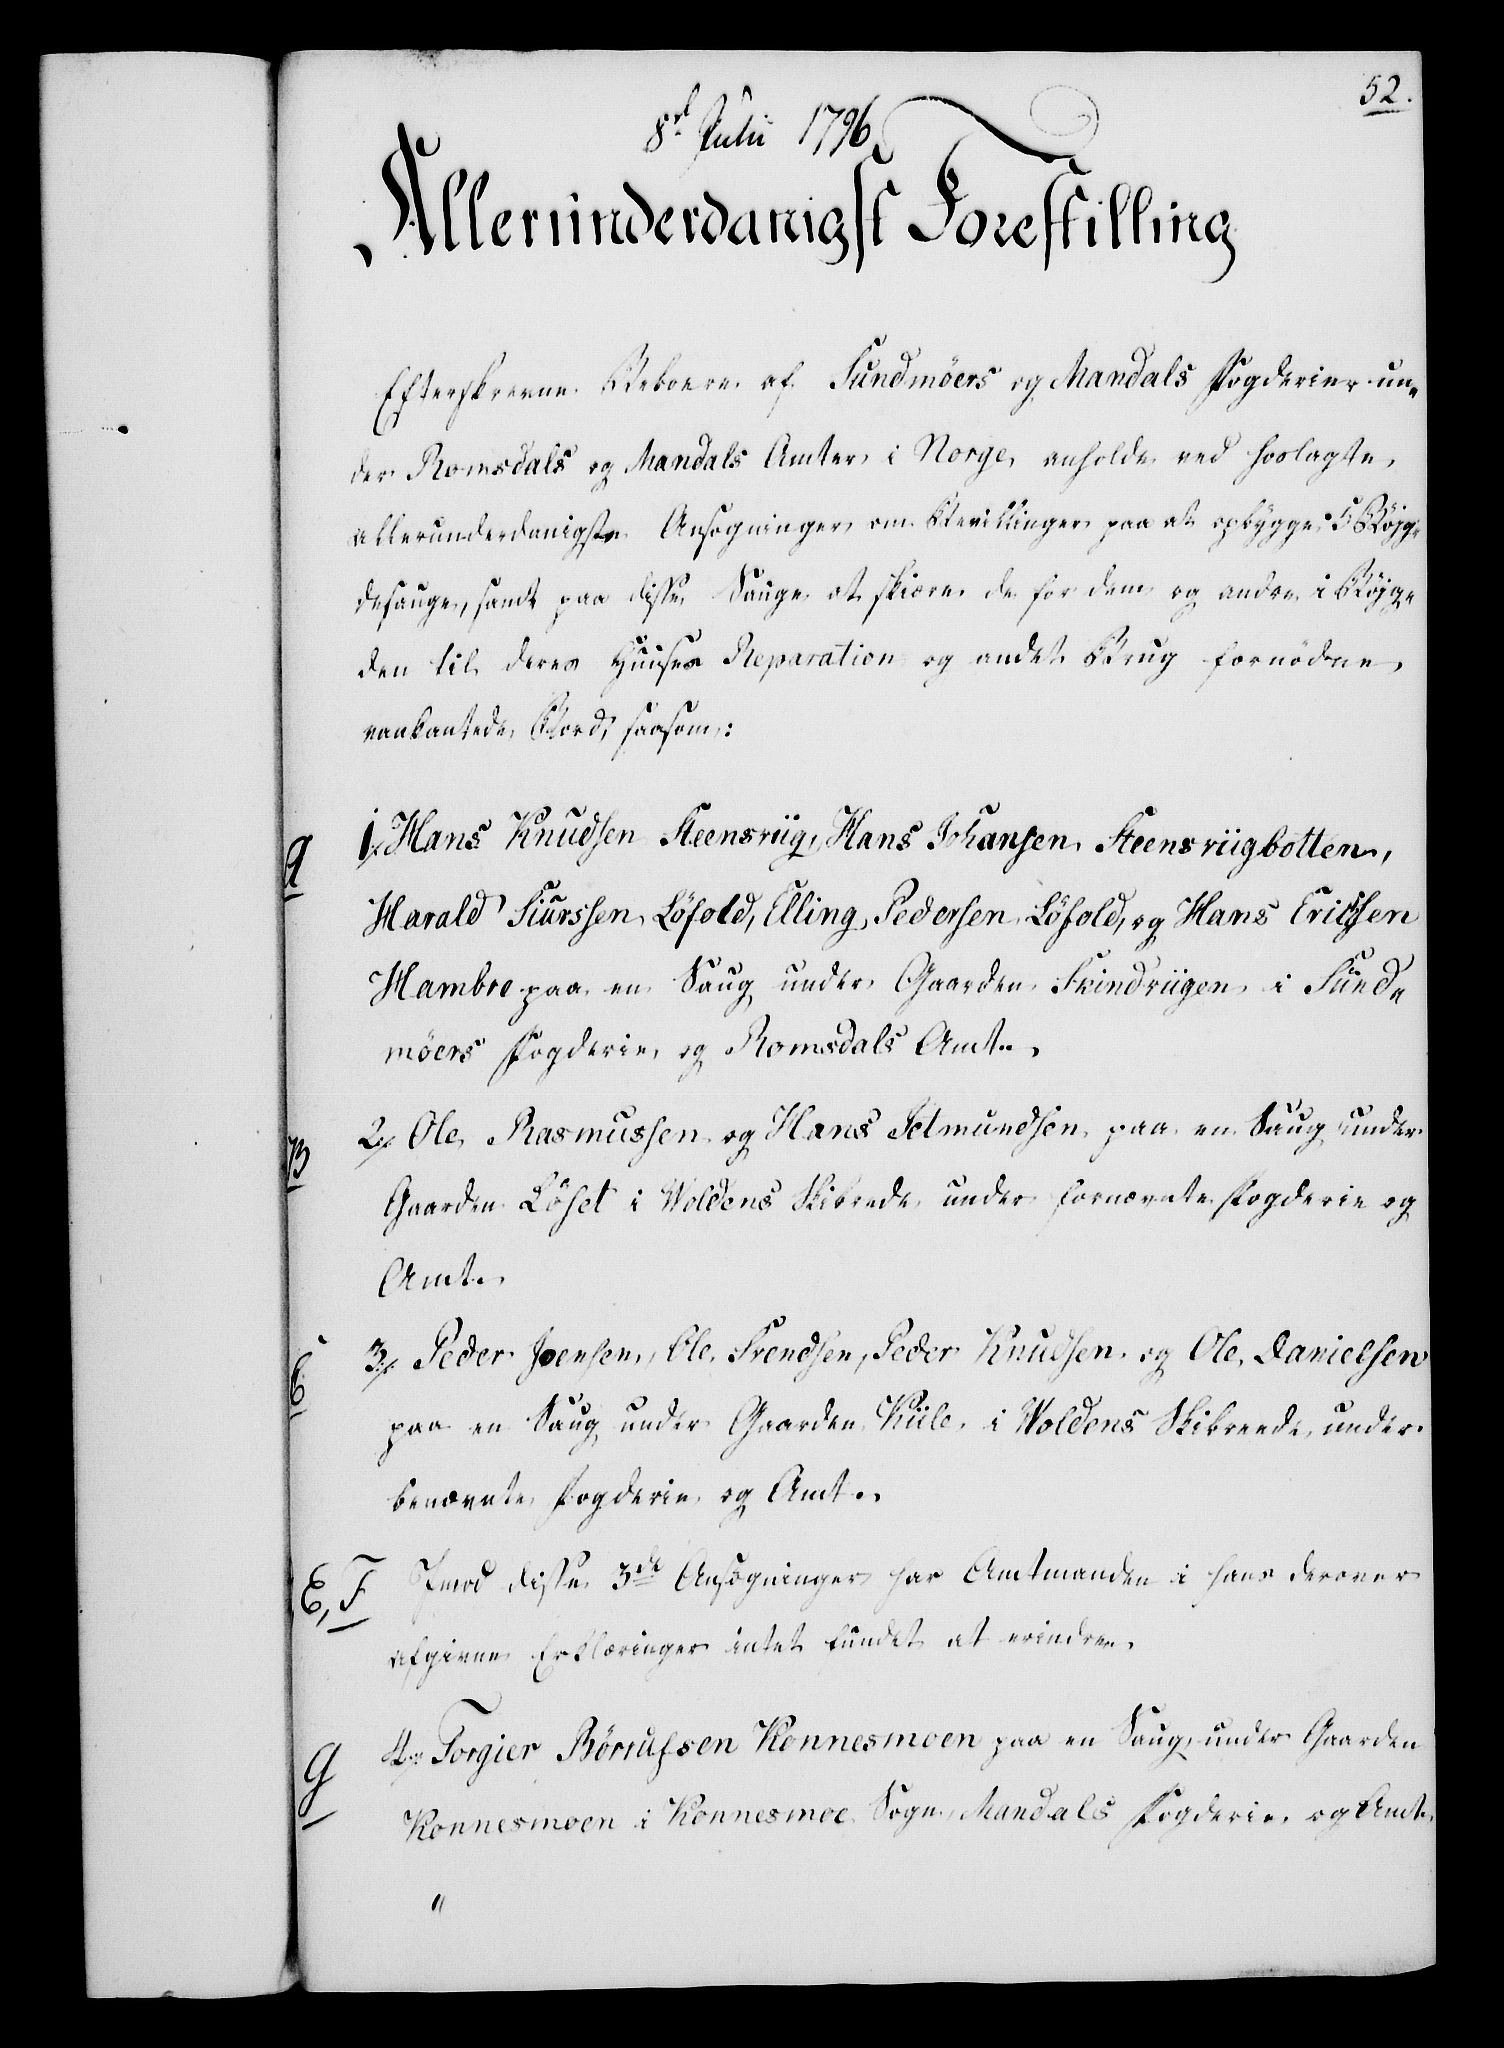 52.
8de Julii 1796
Allerunderdanigst Forestilling
Efterskrevne Beboere af Sundmöers og Mandals Fogderier un-
der Romsdals og Mandals Amter i Norge, anholde ved hoslagte
allerunderdanigste Ansøgninger om Bevillinger paa at opbygge 5 Bøjgde-
desauge, samt paa disse Sauge at skiære de for dem og andre i Bøjgden
den til deres Huuses Reparation og andet Brug fornödne
vankantede Bord, saasom:
A 1, Hans Knudsen Steensriig, Hans Johansen Steensriigbotten,
Harald Siurssen Löfold, Elling Pedersen Löfold, og Hans Erichsen
Hambre paa en Saug under Gaarden Skindriigen i Sund-
möers Fogderie og Romsdals Amt.
B 2, Ole Rasmussen og Hans Setmundsen paa en Saug under
Gaarden Löset i Woldens Skibrede under fornævnte Fogderie og
Amt.
C 3, Peder Joensen, Ole Svendsen, Peder Knudsen og Ole Danielsen
paa en Saug under Gaarden Kiile i Woldens Skibreede, under
benævnte Fogderie og Amt.
E, F Imod disse 3de Ansøgninger har Amtmanden i hans derover
afgivne Erklæringer intet fundet at erindre.
G 4, Torgier Börrufsen Konnesmoen paa en Saug under Gaarden
Konnesmoen i Konnesmoe Sogn Mandals Fogderie og Amt.
"